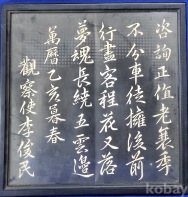 咨詢正值老襄季
不分車徒擁後前
行盡客程花又落
夢魂長繞五雲邊
萬曆乙亥暮春
觀察使李俊民
kobay